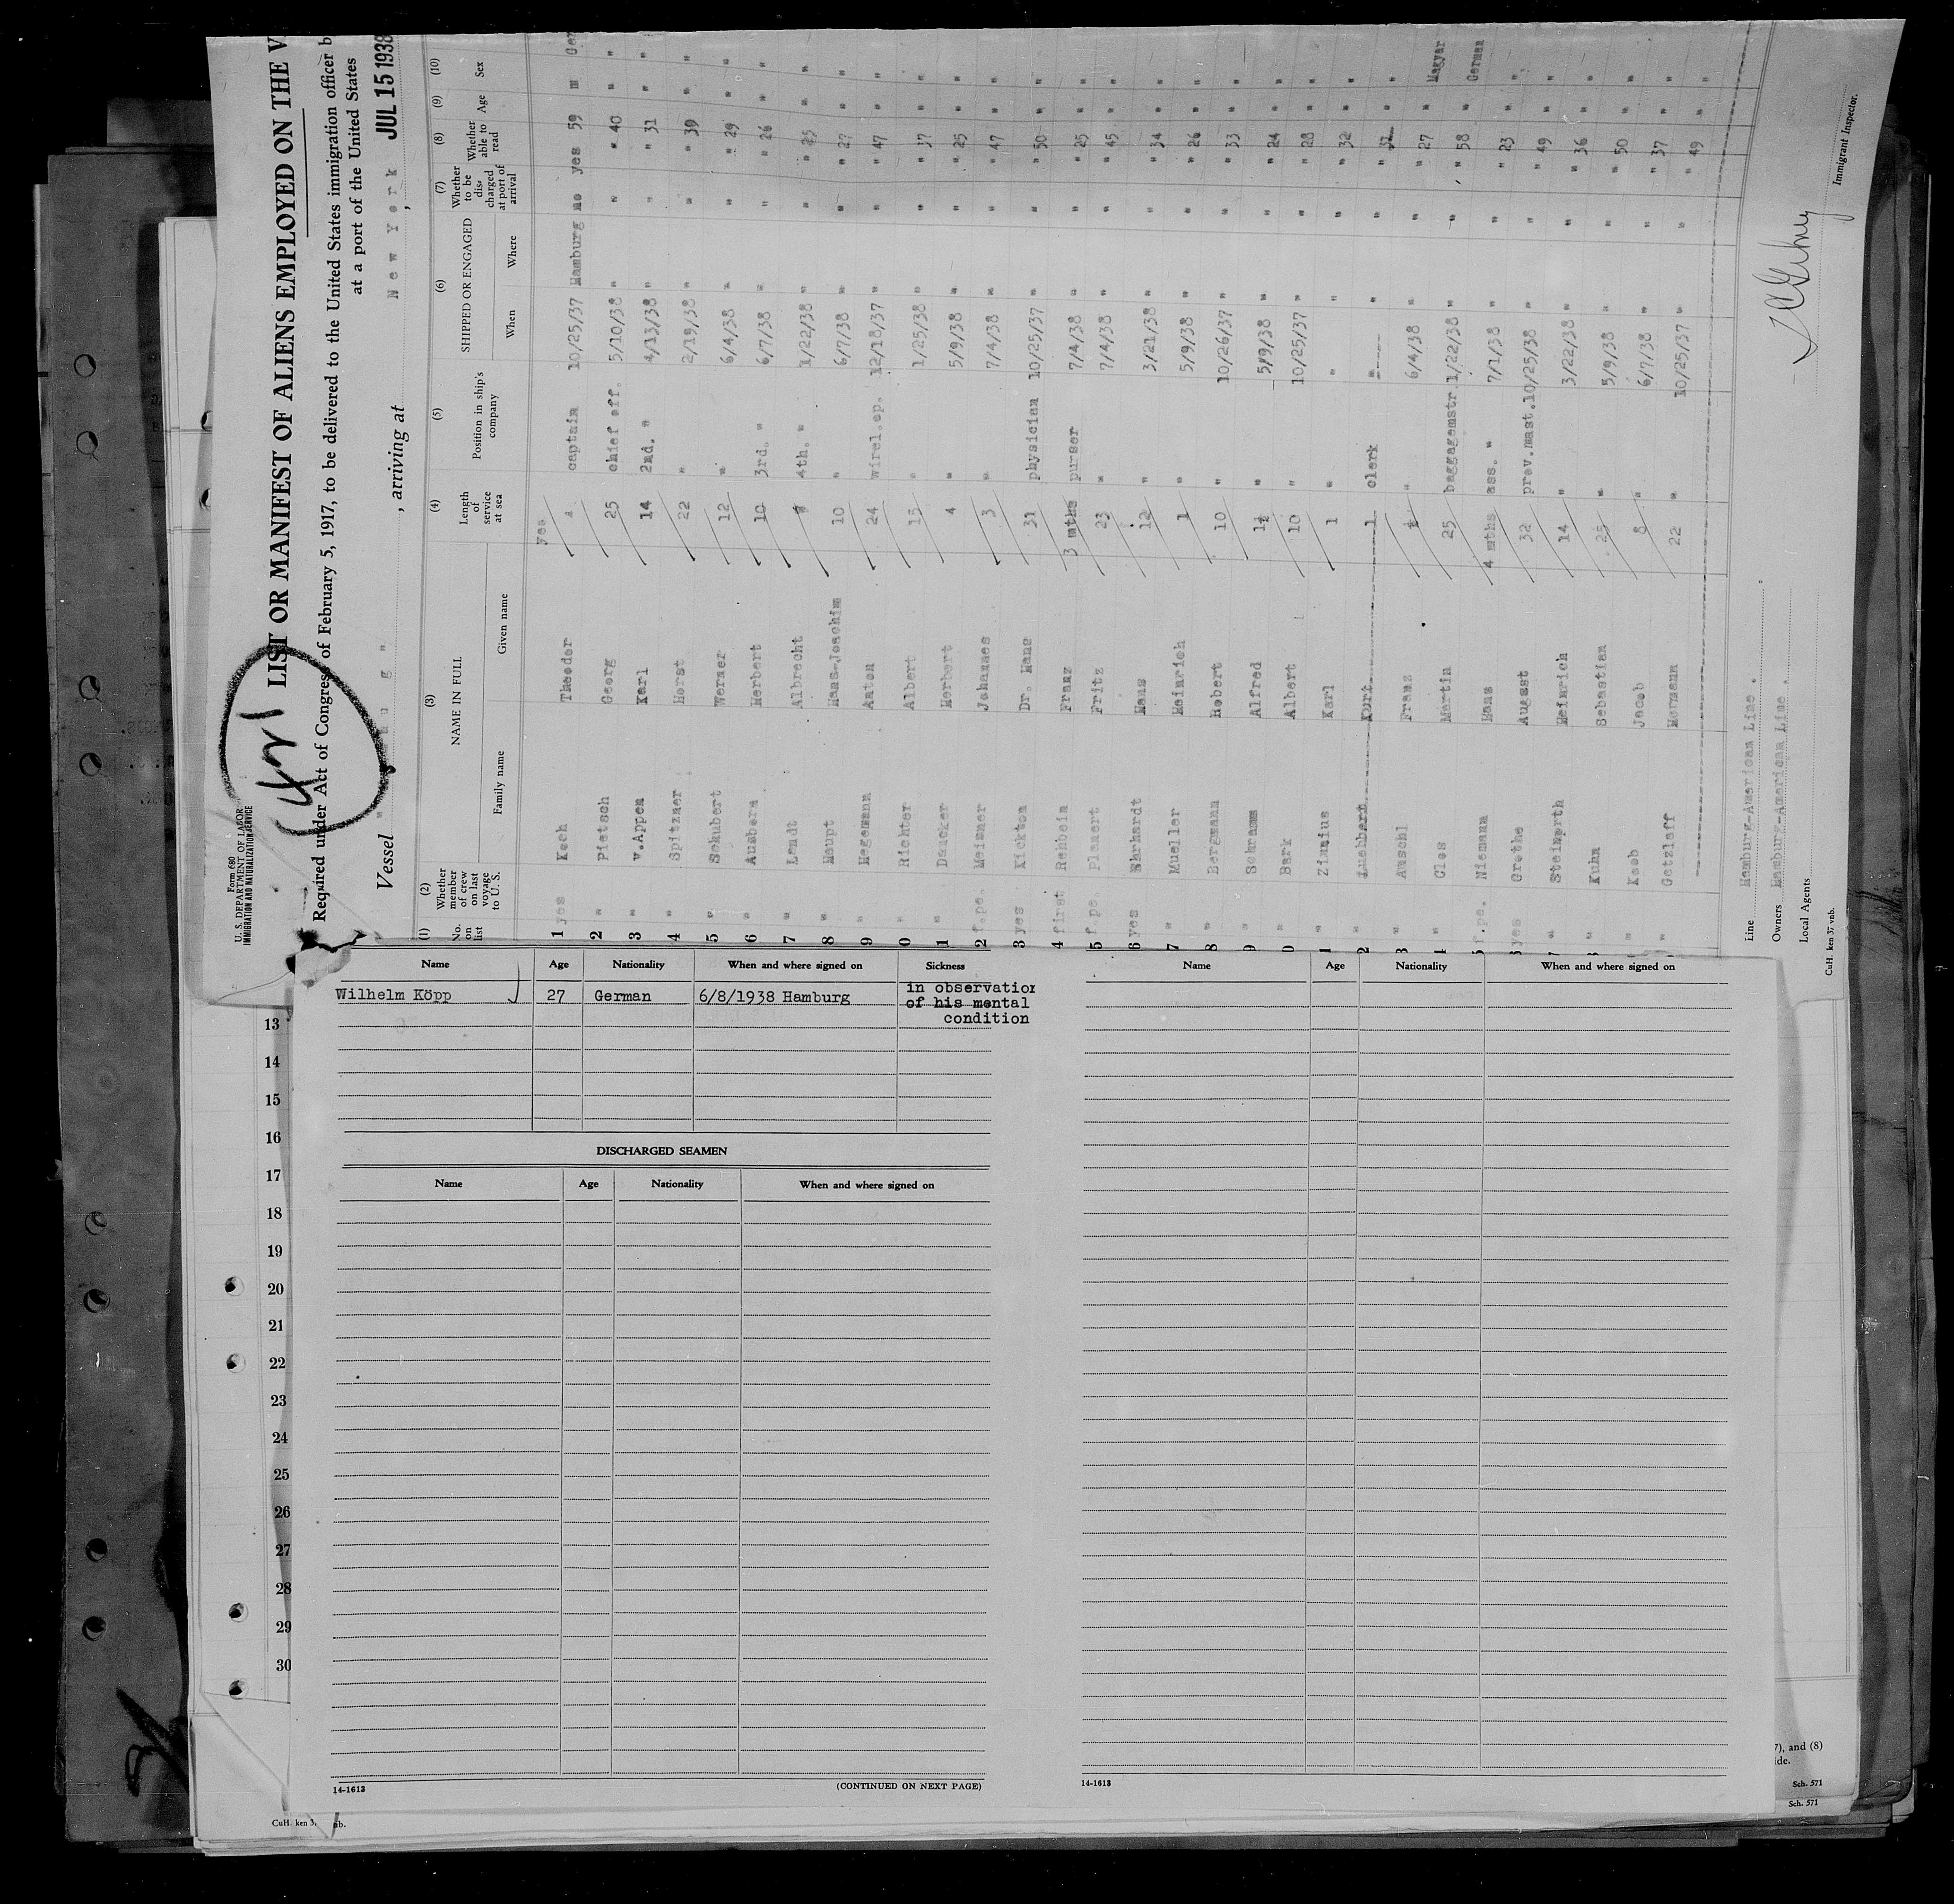 Form 680
U. S. DEPARTMENT OF LABOR
IMMIGRATION AND NATURALIZATION SERVICE
LIST OR MANIFEST OF ALIENS EMPLOYED ON THE V
Required under Act of Congress of February 5, 1917, to be delivered to the United States immigration officer b
at a port of the United States
Vessel , arriving at New York , JUL 15 1938
(1) (2) (3) (4) (5) (6) (7) (8) (9) (10)
No. on list Whether member of crew on last voyage to U. S. NAME IN FULL Length of service at sea Position in ship's company SHIPPED OR ENGAGED Whether to be discharged at port of arrival Whether able to read Age Sex
Family name Given name When Where
yrs
1 yes Koch Theodor 4 captain 10/25/37 Hamburg no yes 59 m Ger
2 " Pietsch Georg 25 chief off. 5/10/38 " " " 40 " "
3 " v.Appen Karl 14 2nd. " 4/13/38 " " " 31 " "
4 " Spitzner Horst 22 " 2/19/38 " " " 39 " "
5 " Schubert Werner 12 " 6/4/38 " " " 29 " "
6 " Ausborn Herbert 10 3rd. " 6/7/38 " " " 26 " "
7 " Landt Albrecht 4th. " 1/22/38 " " " 25 " "
8 " Haupt Hans-Joachim 10 " 6/7/38 " " " 27 " "
9 " Hagemann Anton 24 wirel.op. 12/18/37 " " " 47 " "
0 " Richter Albert 15 " 1/25/38 " " " 37 " "
1 " Dancker Herbert 4 " 5/9/38 " " " 25 " "
2 f.pe. Meisner Johannes 3 " 7/4/38 " " " 47 " "
3 yes Kickton Dr. Hans 31 physician 10/25/37 " " " 50 " "
4 first Rehbein Franz 3 mths purser 7/4/38 " " " 25 " "
5 f.pe. Planert Fritz 23 " 7/4/38 " " " 45 " "
6 yes Ehrhardt Hans 12 " 3/21/38 " " " 34 " "
7 " Mueller Heinrich 1 " 5/9/38 " " " 26 " "
8 " Bergmann Robert 10 " 10/26/37 " " " 33 " "
9 " Schramm Alfred 1½ " 5/9/38 " " " 24 " "
0 " Bark Albert 10 " 10/25/37 " " " 28 " "
1 " Zinnius Karl 1 " " " " " 32 " "
2 " Luebbert Kurt 1 clerk " " " " 31 " "
3 " Auschl Franz " 6/4/38 " " " 27 " Magyar
4 " Clos Martin 25 baggagemstr 1/22/38 " " " 58 " German
5 f.pe. Niemann Hans 4 mths ass. " 7/1/38 " " " 23 " "
6 yes Grothe August 32 prov.mast. 10/25/38 " " " 49 " "
7 " Steinwrth Heinrich 14 " 3/22/38 " " " 36 " "
8 " Kuhn Sebastian 25 " 5/9/38 " " " 50 " "
" Koob Jacob 8 " 6/7/38 " " " 37 " "
" Getzlaff Hermann 22 " 10/25/37 " " " 49 " "
Line Hamburg-American Line .
Owners Hamburg-American Line .
Local Agents
Immigrant Inspector.
CuH. ken 37 vnb.
Name Age Nationality When and where signed on Sickness
Wilhelm Köpp 27 German 6/8/1938 Hamburg in observation
of his mental
condition
DISCHARGED SEAMEN
Name Age Nationality When and where signed on
14-1613 (CONTINUED ON NEXT PAGE)
Name Age Nationality When and where signed on
14-1613
13
14
15
16
17
18
19
20
21
22
23
24
25
26
27
28
29
30
7), and (8)
ide.
Sch. 571
Sch. 571
CuH. ken 3. nb.